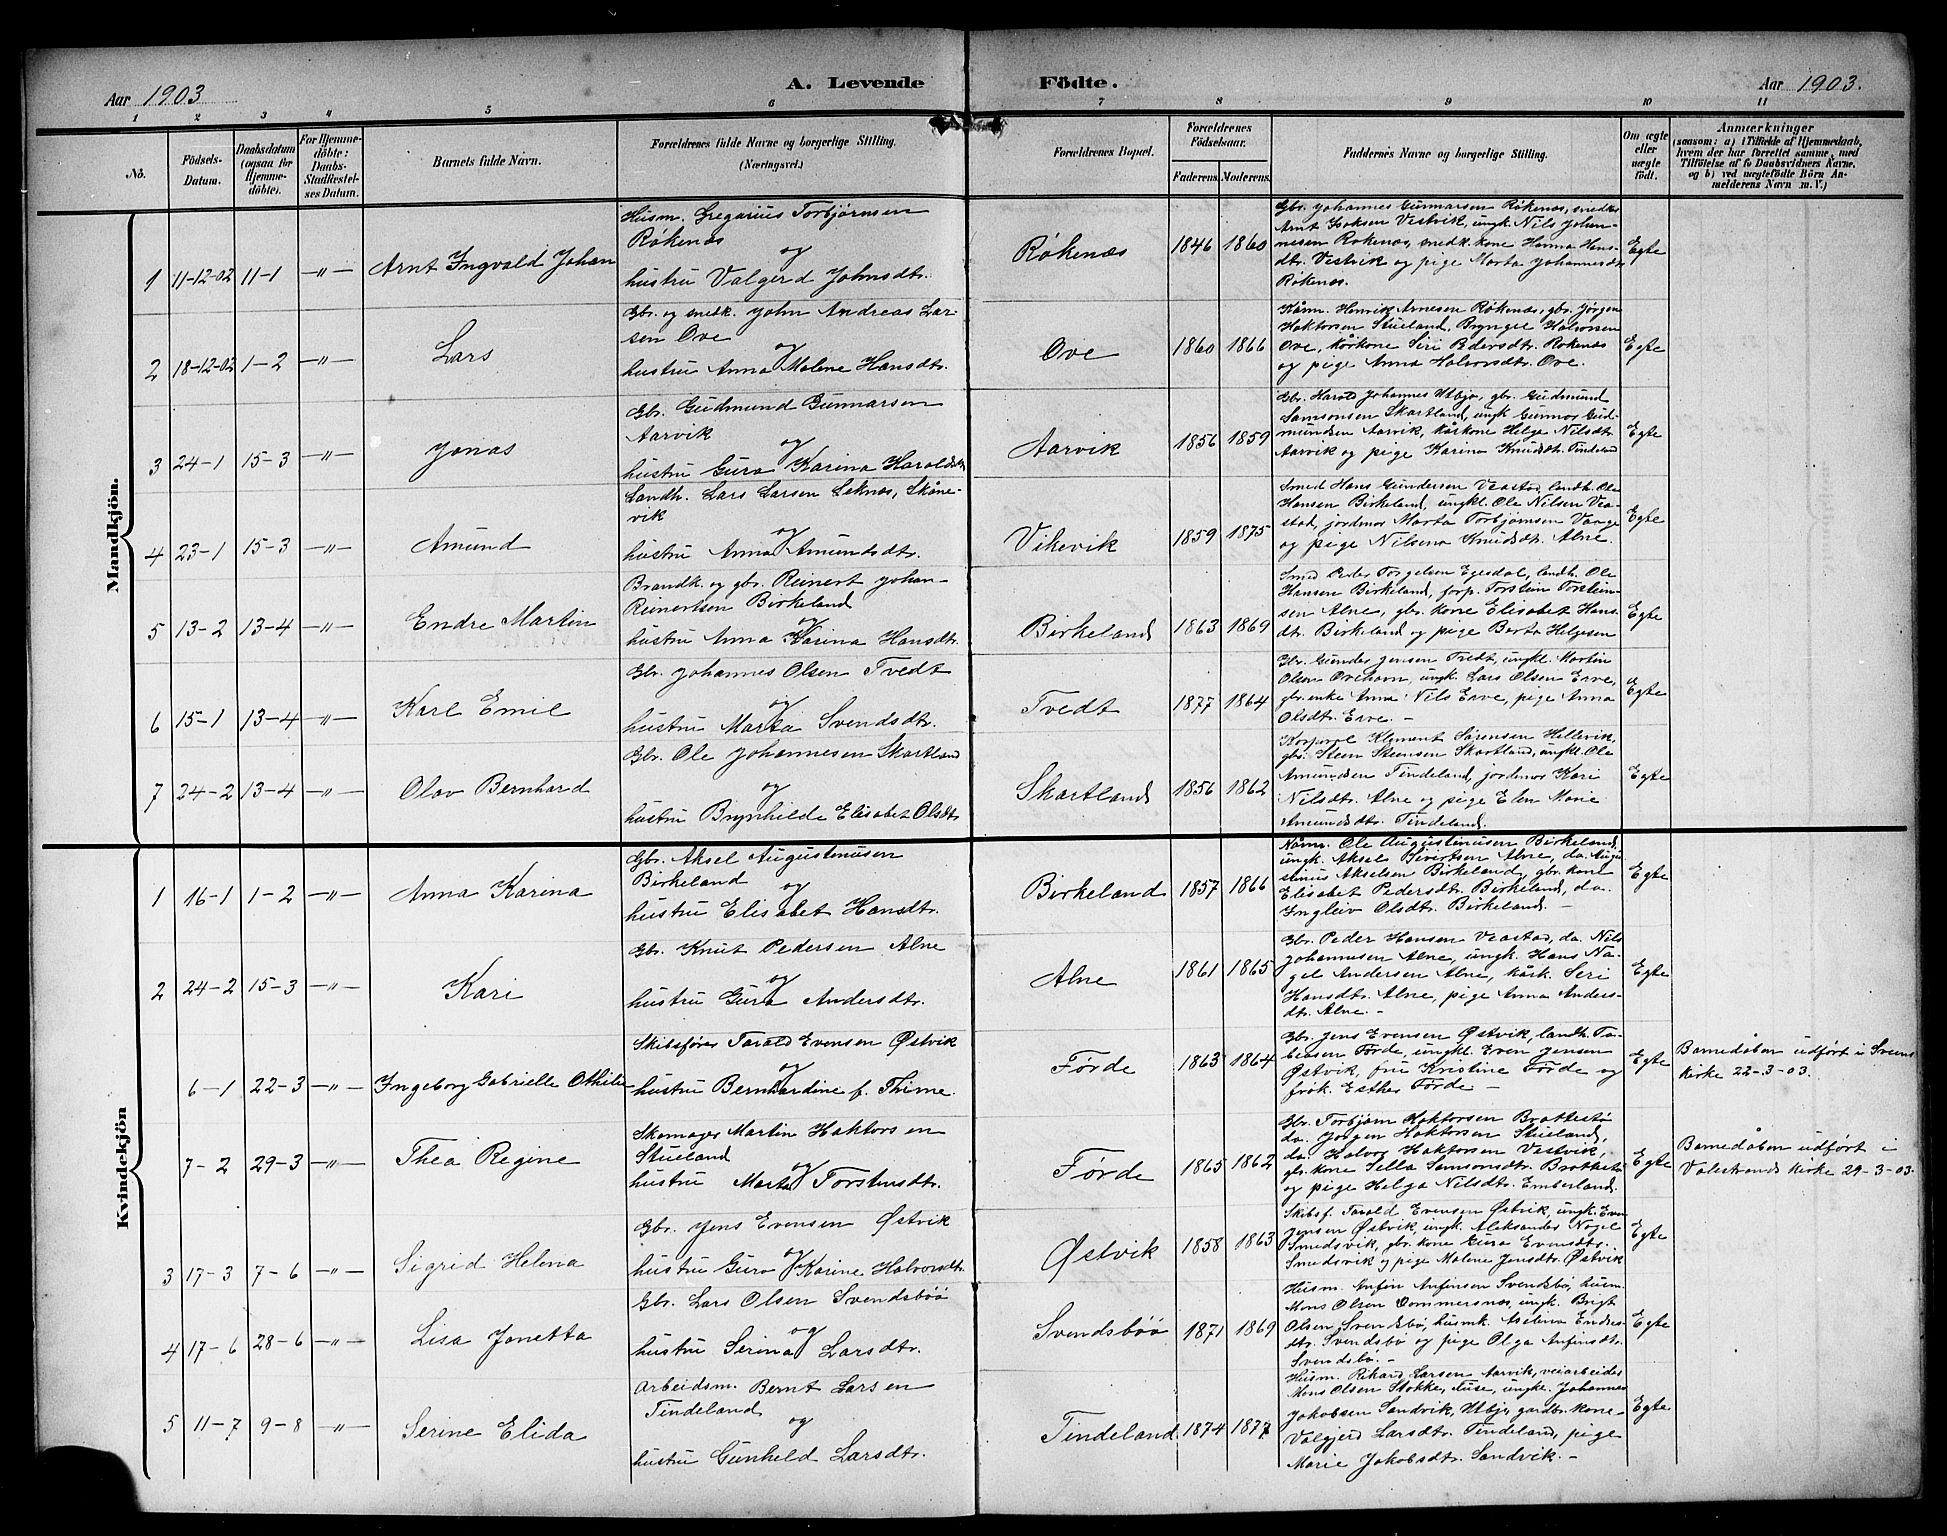 Aar 1903
A. Levende
Födte.
Aar 1903.
1 2 3 4 5 6 7 8 9 10 11
No.
Födsels-
Datum.
Daabsdatum
(ogsaa for
Hjemme-
döbte).
For Hjemme-
döbte:
Daabs-
Stadfæstel-
ses Datum.
Barnets fulde Navn.
Forældrenes fulde Navne og borgerlige Stilling.
(Næringsvei.)
Forældrenes Bopæl.
Forældrenes
Födselsaar.
Faderens. Moderens.
Faddernes Navne og borgerlige Stilling.
Om ægte
eller
uægte
födt.
Anmærkninger
(saasom: a) i Tilfælde af Hjemmedaab,
hvem der har forrettet samme, med
Tilföielse af to Daabsvidners Navne,
og b) ved uægtefödte Börn An-
melderens Navn m. V.)
Mandkjön.
1 11-12-02 11-1 -"- Arnt Ingvald Johan
Husm. Gregarius Torbjørnsen
Røkenæs
og
hustru Valgerd Johnsdtr.
Røkenæs 1846 1860
Gbr. Johannes Gunnarsen Røkenæs, smedk.
Vestvik, ungk. Nils Johan-
nesen Rokenæs, smedk. kone Hanna Hans-
dtr. Vestvik og pige Marta Johannesdtr.
Røkenæs.
Egte
2 18-12-02 1-2 -"- Lars
Gbr. og smedk. John Andreas Lar-
sen Ove
og
hustru Anna Malene Hansdtr.
Ove 1860 1866
Kånn. Henrik Arnesen Røkenæs, gbr. Jørgen
Haktorsen Stueland, Bryngel Halvorsen
Ove, kårkone Siri Pedersdtr. Røkenæs
og pige Anna Halvorsdtr. Ove.
Egte
3 24-1 15-3 -"- Jonas
Gbr. Gudmund Gunnarsen
Aarvik
og
hustru Guro Karina Haraldsdtr.
Aarvik 1856 1859
Gbr. Harald Johannes Utbjo, gbr. Gudmund
Samsonsen Skartland, ungk. Gunnar Gud-
mundsen Aarvik, kårkone Helga Nilsdtr.
Aarvik og pige Karina Knudsdtr. Tindeland
Egte
4 23-1 15-3 -"- Amund
Landh. Lars Larsen Leknes, Skåne-
vik
og
hustru Anna Amundsdtr.
Vikevik 1859 1875
Smed Hans Gundersen Veastad, landh. Ole
Hansen Birkeland, ungkl. Ole Nilsen Vea-
stad, jordmor Marta Torbjørnsen Vaage
og pige Nilsena Knudsdtr. Alne.
Egte
5 13-2 13-4 -"- Endre Martin
Brandk. og gbr. Reinert Johan-
Reinertsen Birkeland
og
hustru Anna Karina Hansdtr.
Birkeland 1863 1869
Smed Peder Torgelsen Egesdal, landh. Ole
Hansen Birkeland, forp. Torstein Torstein-
sen Alne, gbr. kone Elisabet Hans-
dtr. Birkeland og pige Berta Helgesen
Egte
6 15-1 13-4 -"- Karl Emil
Gbr. Johannes Olsen Tvedt
og
hustru Marta Svendsdtr.
Tvedt 1877 1864
Gbr. Gunder Jensen Tvedt, ungk. Martin
Olsen Ovehavn, ungk. Lars Olsen Erve,
gbr. enke Anna Nils Erve, pige Anna
Olsdtr. Erve. -
Egte
7 24-2 13-4 -"- Olav Bernhard
Gbr. Ole Johannesen Skartland
og
hustru Brynhilde Elisabet Olsdtr.
Skartland 1856 1862
Korporal Klement Sørensen Hellevik,
gbr. Steen Steensen Skartland, ungkl. Ole
Amundsen Tindeland, jordmor Kari
Nilsdtr. Alne og pige Elen Marie
Amundsdtr. Tindeland.
Egte
Kvindekjön
1 16-1 1-2 -"- Anna Karina
Gbr. Aksel Augustinusen
Birkeland
og
hustru Elisabet Hansdtr.
Birkeland 1857 1866
Kånn. Ole Augustinusen Birkeland,
ungk. Aksel Sivertsen Alne, do. Augu
stinus Akselsen Birkeland, gbr. kone
Elisabet Pedersdtr. Birkeland, do.
Ingleiv Olsdtr. Birkeland. -
Egte
2 24-2 15-3 -"- Kari
Gbr. Knut Pedersen Alne
og
hustru Guro Andersdtr.
Alne 1861 1865
Gbr. Peder Hansen Veastad, do. Nils
Johannesen Alne, ungk. Hans Na-
gel Andersen Alne, kårk. Seri
Hansdtr. Alne, pige Anna Anders-
dtr. Alne. -
Egte
6-1 22-3 -"- Ingeborg Gabrielle Othilie
Skibsfører Tarald Evensen Østvik
og
hustru Bernhardine f. Thime.
Førde 1863 1864
Gbr. Jens Evensen Østvik, landh. To-
biasen Førde, ungkl. Even Jensen
Østvik, fru Kristine Førde og
frøk. Esther Førde -
Egte
Barnedåben udført i Sveens
kirke 22-3-03.
7-2 29-3 -"- Thea Regine
Skomager Martin Haktorsen
Stueland
og
hustru Marta Torstensdtr.
Førde 1865 1862
Gbr. Torbjørn Haktorsen Brattestø
do. Jørgen Haktorsen Stueland,
do. Halvor Haktorsen Vestvik,
gbr. kone Sella Samsonsdtr. Brattestø
og pige Helga Nilsdtr. Emberland.
Egte
Barnedåben udført i
Valestrands kirke 29-3-03.
3 17-3 7-6 -"- Sigrid Helena
Gbr. Jens Evensen Østvik
og
hustru Guro Karine Halvorsdtr.
Østvik 1858 1863
Skibsf. Tarald Evensen Østvik, ungk. Even
Jensen Østvik, ungk. Aleksander Nagel
Smedsvik, gbr. kone Guro Evensdtr.
Smedsvik og pige Malene Jensdtr. Østvik
Egte
4 17-6 28-6 -"- Lisa Jonetta
Gbr. Lars Olsen Svendsbøø
og
hustru Serina Larsdtr.
Svendsbøø 1871 1869
Husm. Anfin Anfinsen Svendsbø, husm.
Mons Olsen Dommersnæs, ungk. Brigt
Olsen Svendsbø, husmk. Aselina Endres-
dtr. Svendsbø og pige Olga Anfinsdtr.
Svendsbø. -
Egte
5 11-7 9-8 -"- Serine Elida
Arbeidsm. Bernt Larsen
Tindeland
og
hustru Gunheld Larsdtr.
Tindeland 1874 1877
Husm. Rikard Larsen Aarvik, veiarbeider
Mons Olsen Stokke, Fuse, ungk. Johannes
Jakobsen Sandvik, Utbjo, gardbr. kone
Valgjerd Larsdtr. Tindeland, pige
Marie Jakobsdtr. Sandvik. -
Egte